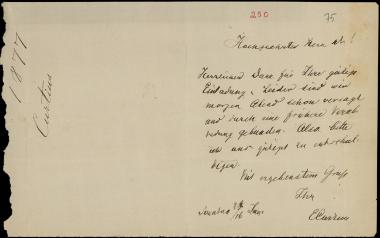 1877
Curtius
250
75
Hochgeehrter Herr
Herzlichen Dank für Ihre gütige
Einladung. Leider sind wir
morgen Abend schon versagt
und durch eine frühere Verab
redung gebunden. Also bitte
ich uns gütigst zu entschul
digen.
Mit ergebenstem Gruß
Ihr
ECurtius